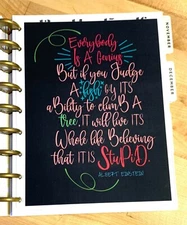 Everybody
Is A Genius
But if you Judge
A "fish" by ITS
aBility to climB A
tree, IT will live ITS
Whole life Believing
that IT IS StuPiD.
ALBERT EINSTEIN
NOVEMBER
DECEMBER